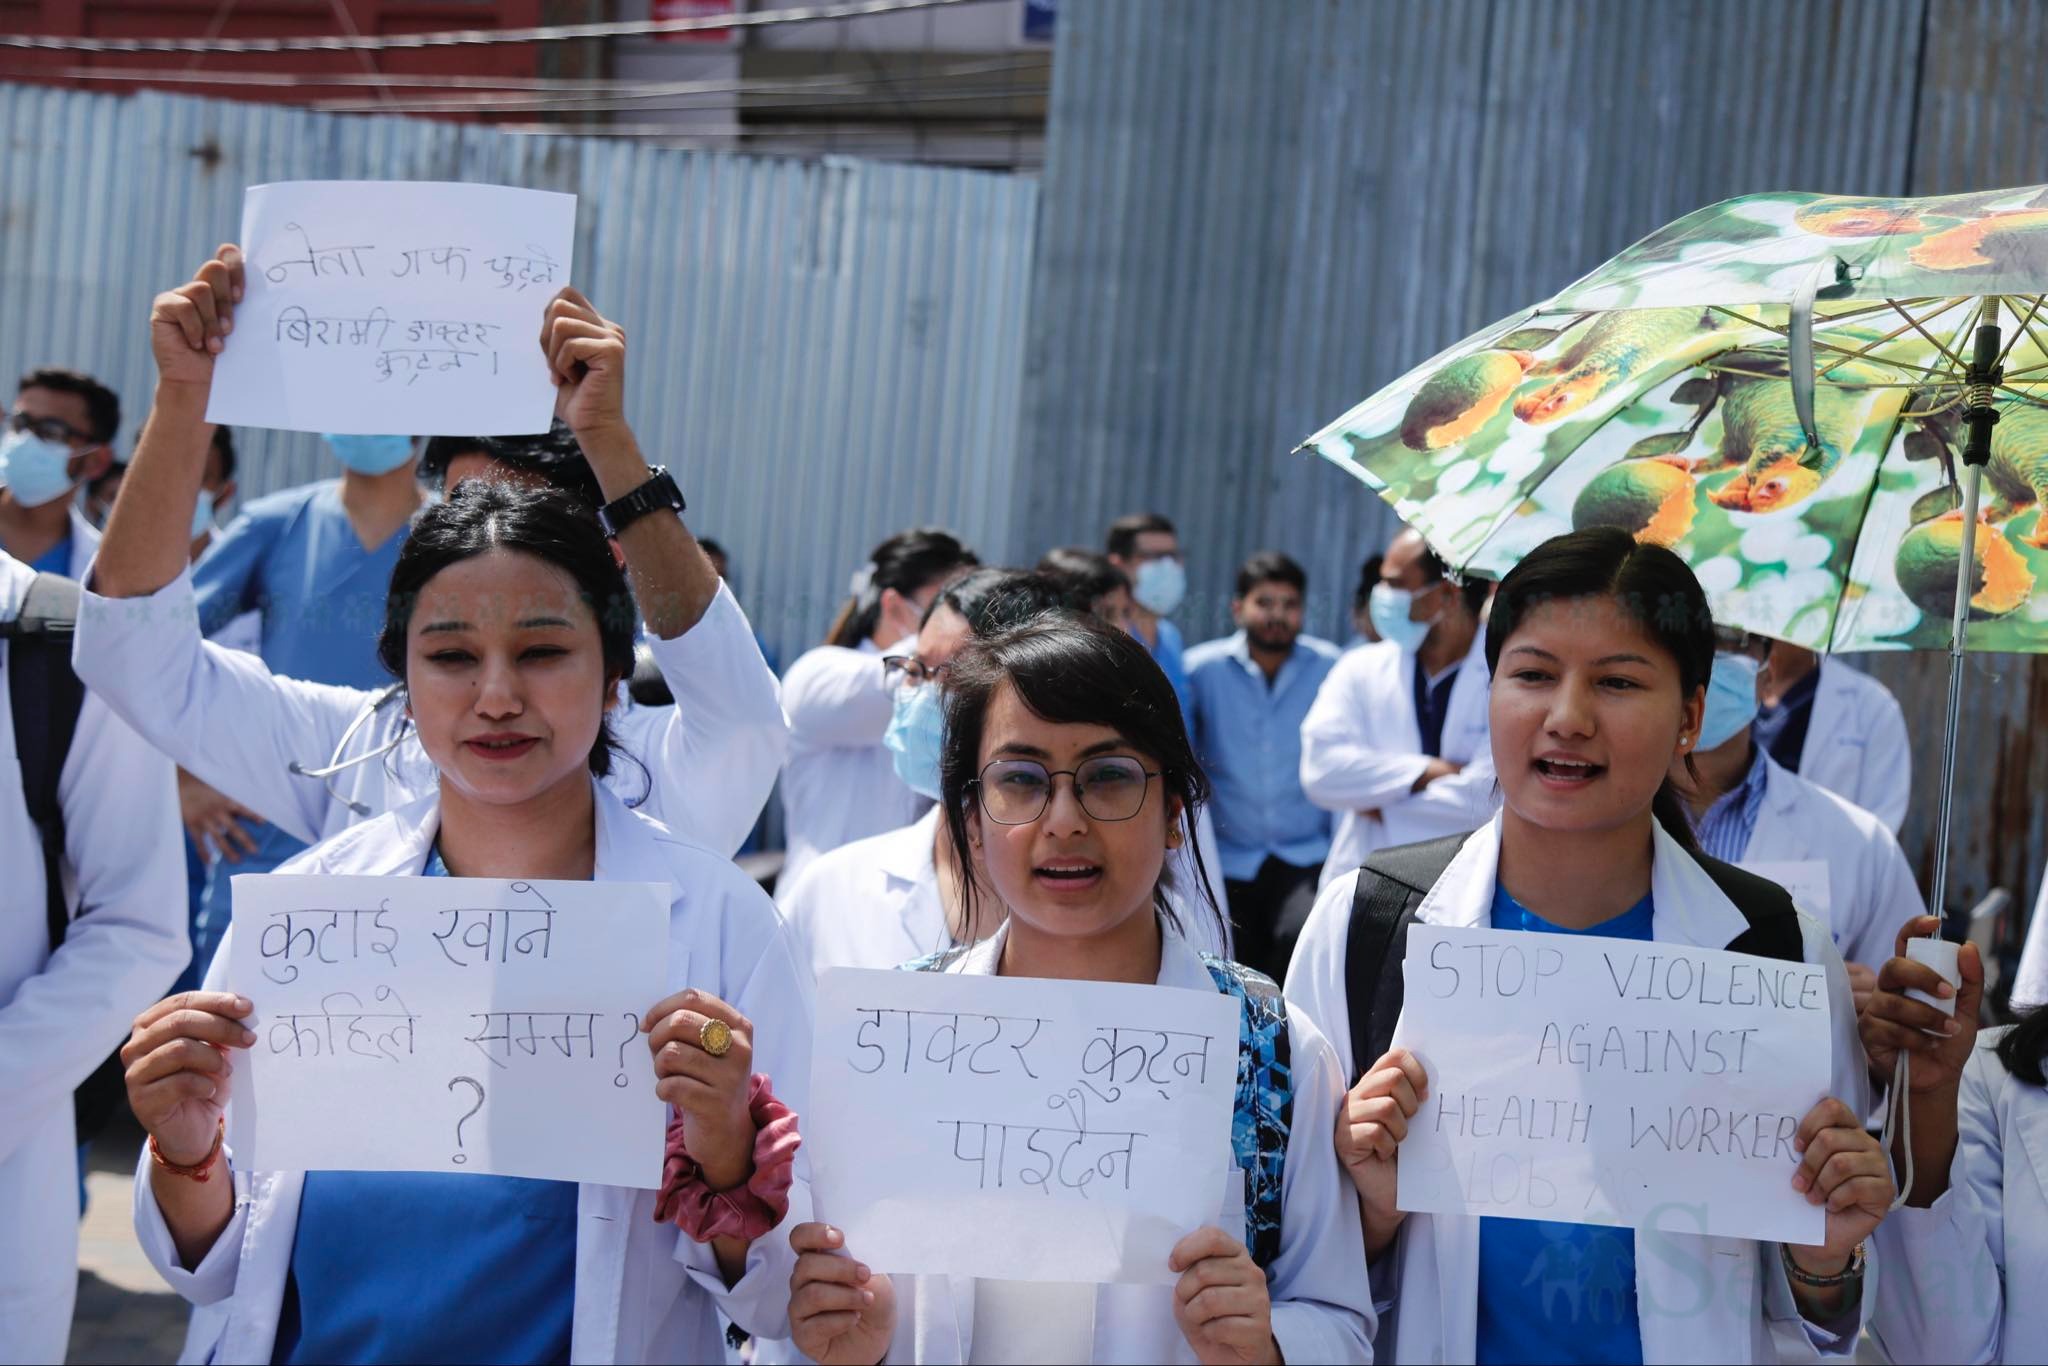 नेता गफ चुट्ने
बिरामी डाक्टर
कुट्ने ।
कुटाई खाने
कहिले सम्म ?
?
डाक्टर कुट्न
पाइदैन
STOP VIOLENCE
AGAINST
HEALTH WORKER